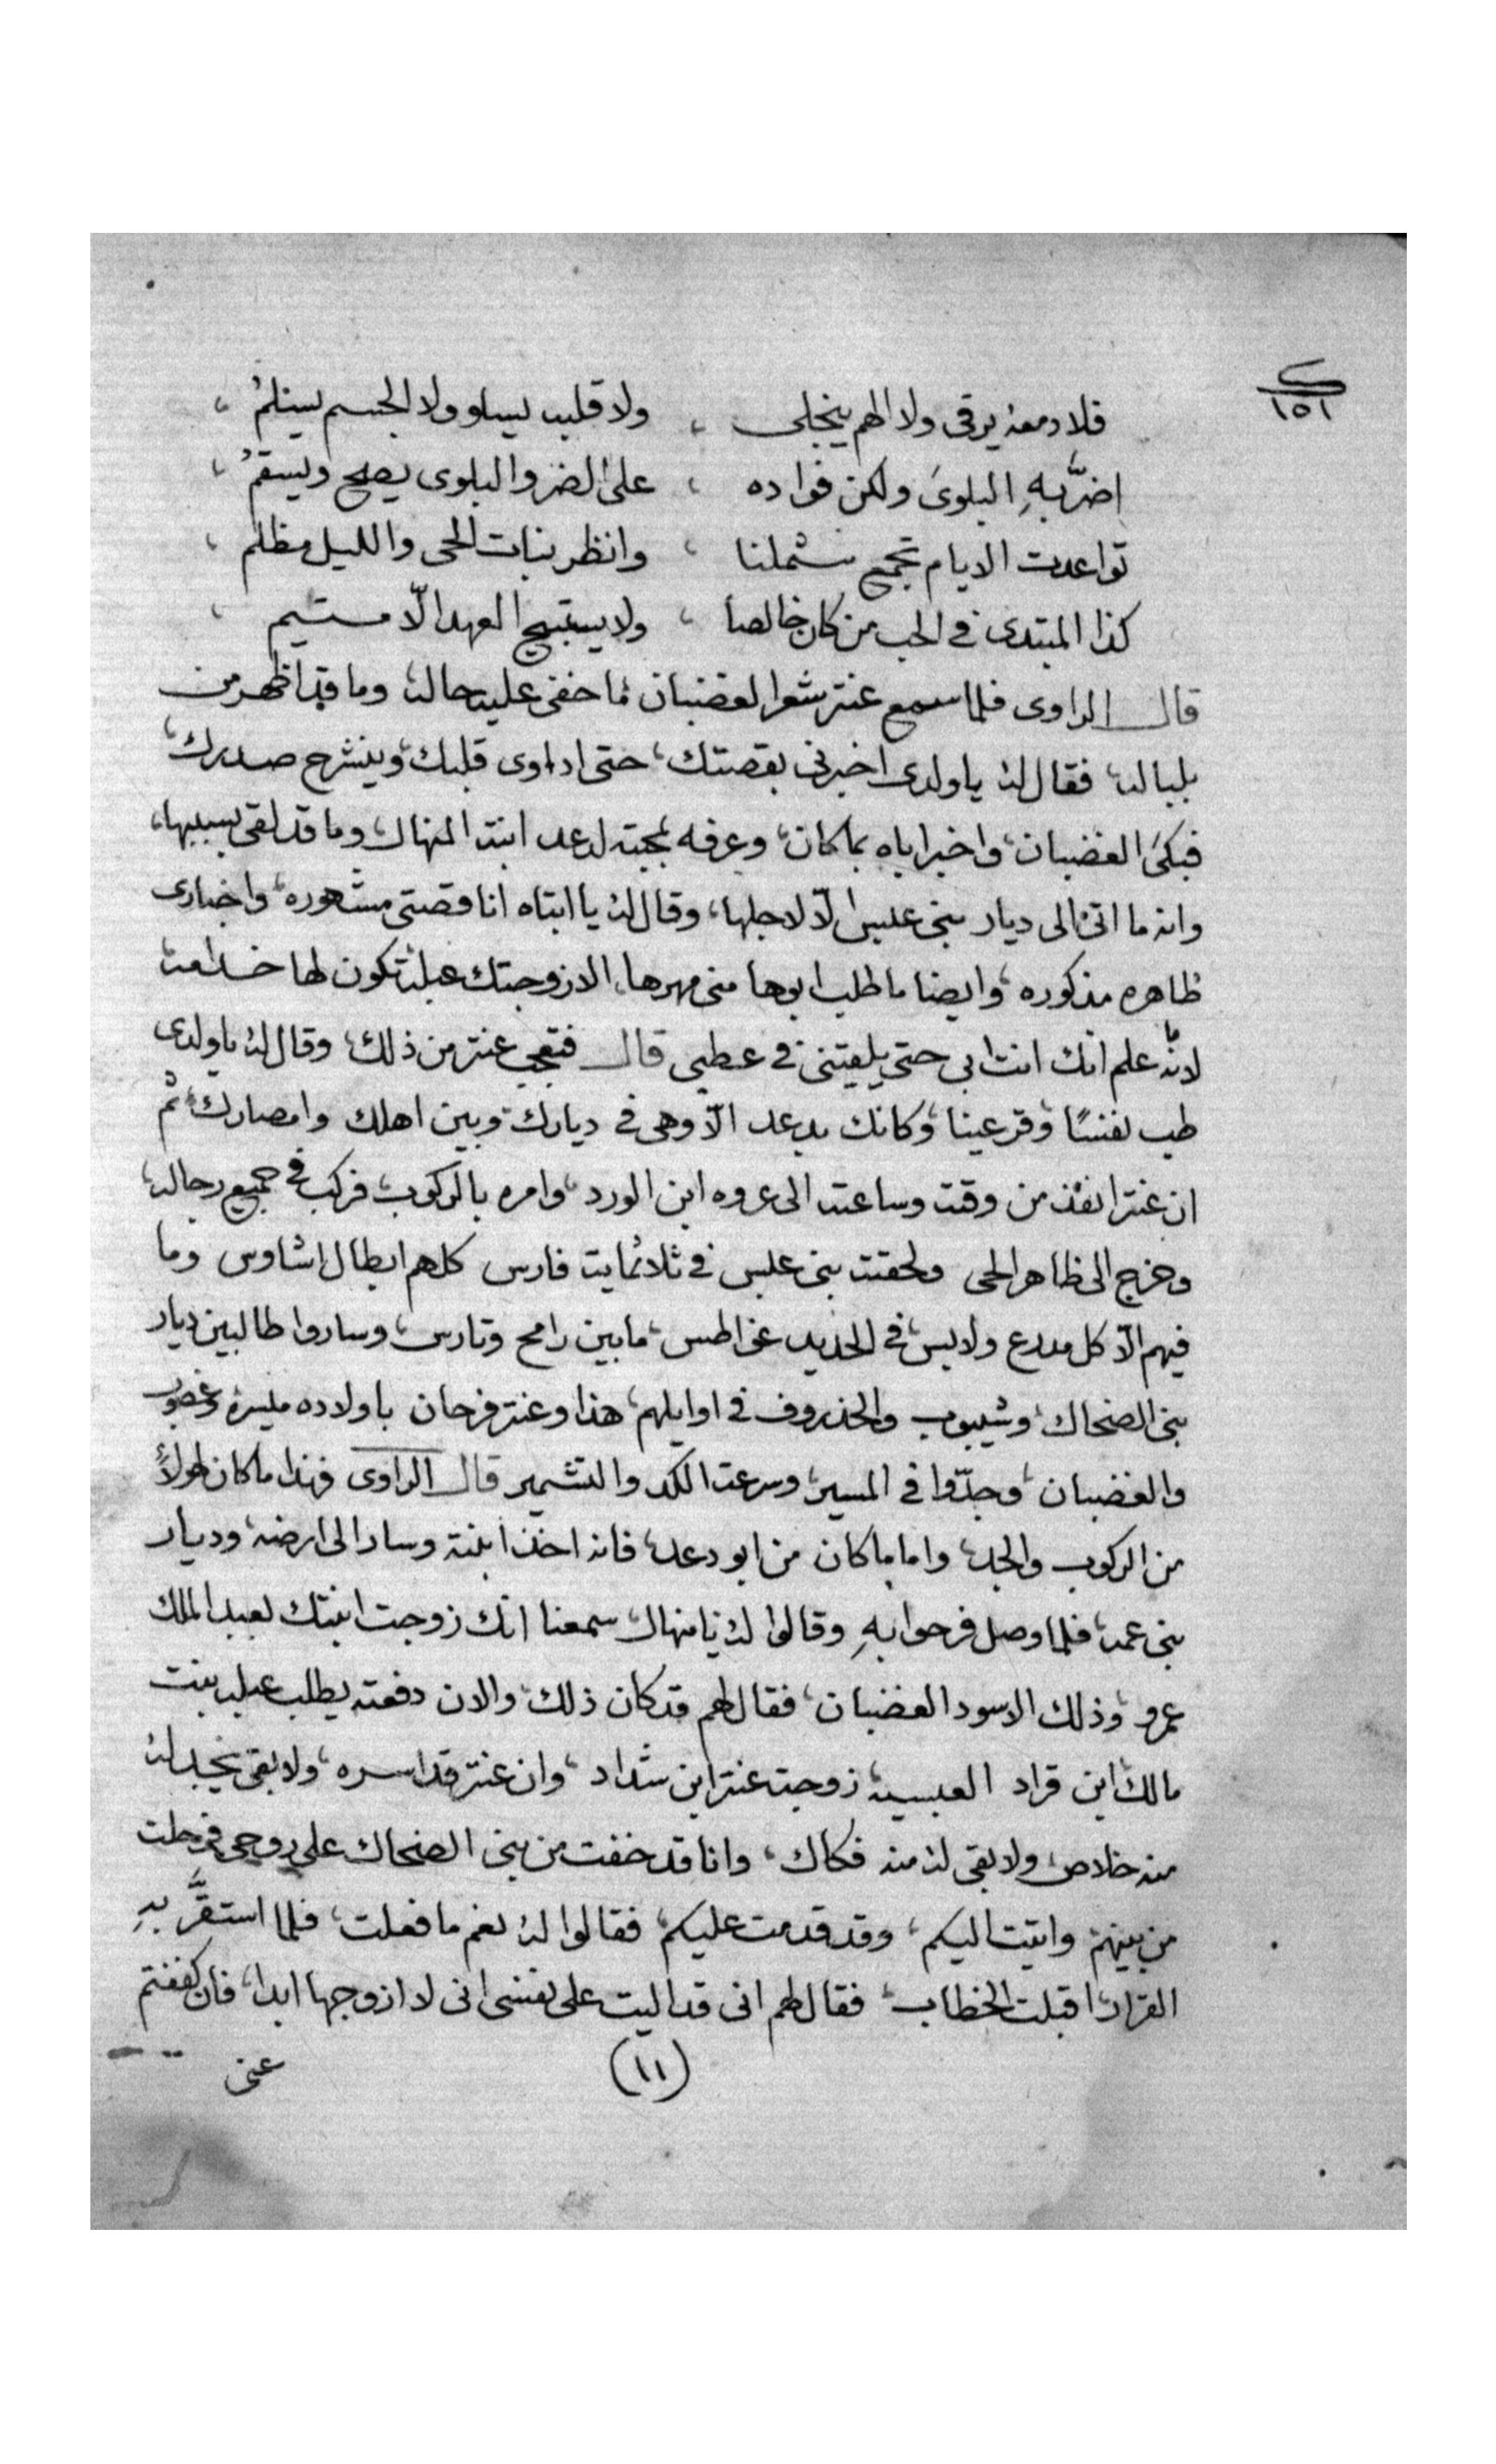 ١٥١
فلا دمعه يرقى ولا الهم ينجلى ، ولا قلبه يسلو ولا الجسم يسلمُ ،
اضرَّ بهِ البلوىَ ولكن فواده ، على الضر والبلوى يصلح ويسقمُ ،
تواعدت الايام تجمع شملنا ، وانظر بنات الحى والليل مظلم ،
كذا المبتدى فى الحب من كان خالصا ، ولا يستبيح العهد الّا متيم ،
قال الراوى فلما سمع عنتر شعر الغضبان ما خفى عليه حاله، وما قد اظهر من
بلباله، فقال له يا ولدى اخبرنى بقصتك، حتى اداوى قلبك، وينشرح صدرك،
فبكىَ الغضبان، واخبر اباه بما كان، وعرفه بمحبته لدعد ابنة المنهال، وما قد لقى بسببها،
وانه ما اتى الى ديار بنى عبس الّا لاجلها، وقال له يا ابتاه انا قصتى مشهوره، واخبارى
ظاهره مذكوره، وايضا ما طلب ابوها منى مهرها، الا زوجتك عبله تكون لها خدامه،
لانّه ما علم انك انت ابى حتى يلقيتنى فى عطبى قال فتعجب عنتر من ذلك، وقال له يا ولدى
طب نفسًا، وقر عينا، وكانك بدعد الّا وهى فى ديارك، وبين اهلك وامصارك، ثم
ان عنتر انفذ من وقته وساعته الى عروه ابن الورد، وامره بالركوب، فركب فى جميع رجاله،
وخرج الى ظاهر الحى ولحقته بنى عبس فى ثلاثماية فارس كلهم ابطال اشاوس وما
فيهم الّا كل مدرع ولابس، فى الحديد غواطس، ما بين رامح وتارس، وساروا طالبين ديار
بنى الضحاك، وشيبوب والخذروف فى اوايلهم، هذا وعنتر فرحان باولاده ميسره وغصوب
والغضبان، وجدّوا فى المسير، وسرعة الكد والتشمير قال الراوى فهذا ما كان لهولاء
من الركوب والجد، واما ما كان من ابو دعد، فانه اخذ ابنته وسار الى ارضه، وديار
بنى عمه، فلما وصل فرحوا بهِ وقالوا له يا منهال، سمعنا انك زوجت ابنتك لعبد الملك
عمرو، وذلك الاسود الغضبان، فقال لهم قد كان ذلك، والان دفعته يطلب عبله بنت
مالك، ابن قراد العبسيه، زوجة عنتر ابن شداد، وان عنتر قد اسره، ولا بقى يجد له
منه خلاص، ولا بقى له منه فكاك، وانا قد خفت من بنى الضحاك على روحى فرحلت
من بينهم واتيت اليكم، وقد قدمت عليكم، فقالوا له نعم ما فعلت، فلما استقرَّ بهِ
القرار، اقبلت الخطاب، فقال لهم انى قد اليت على نفسى انى لا ازوجها ابدا، فان كففتم
(١١)
عنى